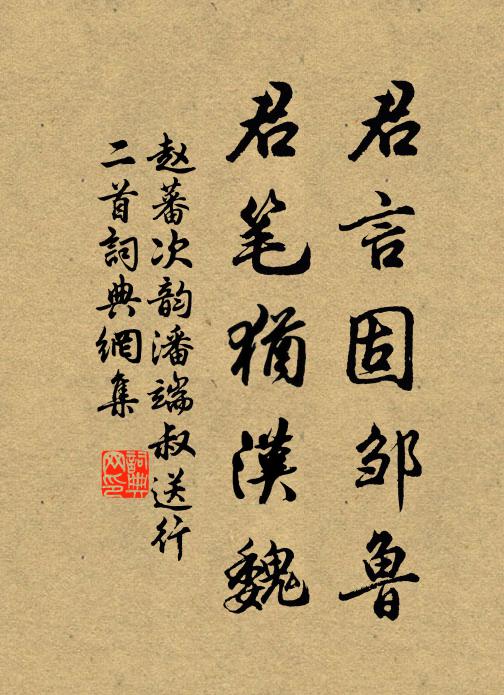 君言固邹鲁
君笔犹漢魏
赵蕃次韵潘端叔送行
二首詞典網集
詞典网印